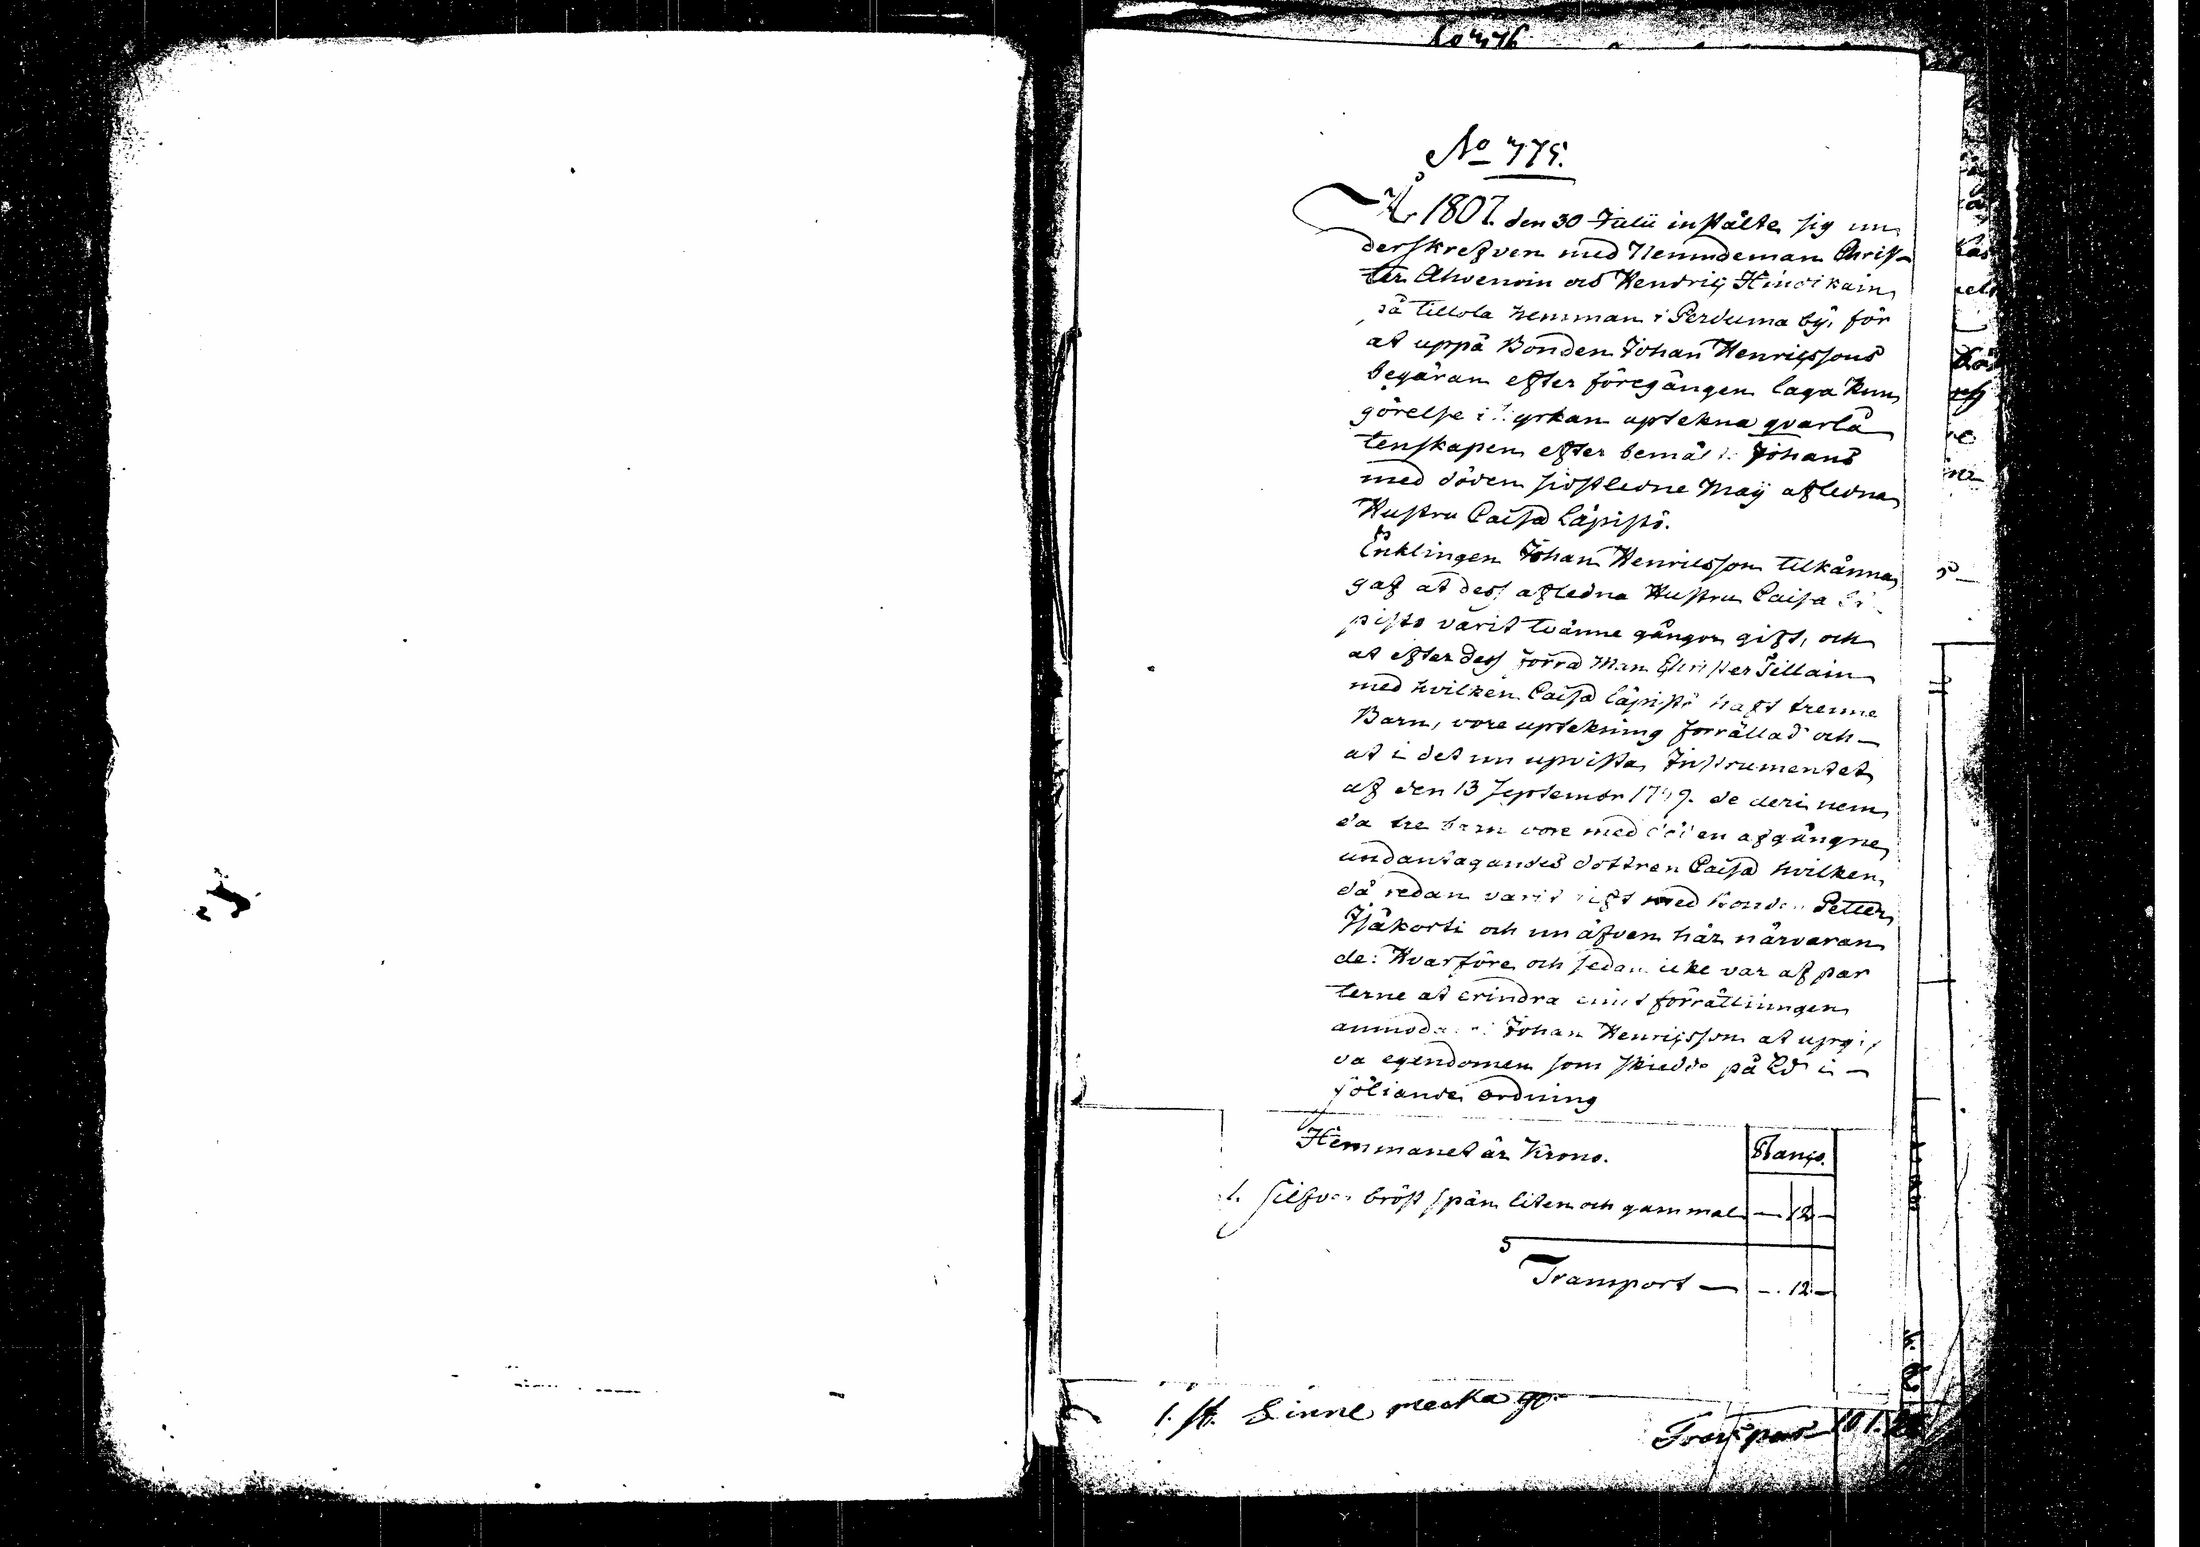 No 775.
År 1807. den 30 Julii instälte sig un
derskrefven med Nemndeman Chris-
ter Ahvenain och Hendric Heinikain
på Tillola hemman i Perduma by, för
at uppå Bonden Johan Henricssons
begäran efter föregången laga kun
görelse i Kyrkan uptekna qvarlå
tenskapen efter bemälte Johans
med döden sistledne Maij afledna
Hustru Caisa Läpistö.
Enklingen Johan Henricsson tilkänna
gaf at dess afledna Hustru Caisa Lä
pistö varit tvänne gångor gift, och
at efter dess förra Man Christer Tillain
med hvilken Caisa Läpistö haft trenne
Barn, vore uptekning förrättad och
at i det nu upvista Instrumentet
af den 13 Septembr de deri nem
da tre barn vore med döden afgångne
undantagandes dottren Caisa hvilken
då redan varit gift med bonden Petter
Jääkorti och nu äfven här närvaran
de: Hvarföre och sedan icke var af par
terne at erindra emot förrättningen
anmodades Johan Henricsson at upgif
va egendomen som skedde på Ed i
följande ordning
Hemmanet är Krono. Banco.
1. silfver bröst spän liten och gammal — 12 —
Transport — — 12 —
1. st. Linne
Transport 101.